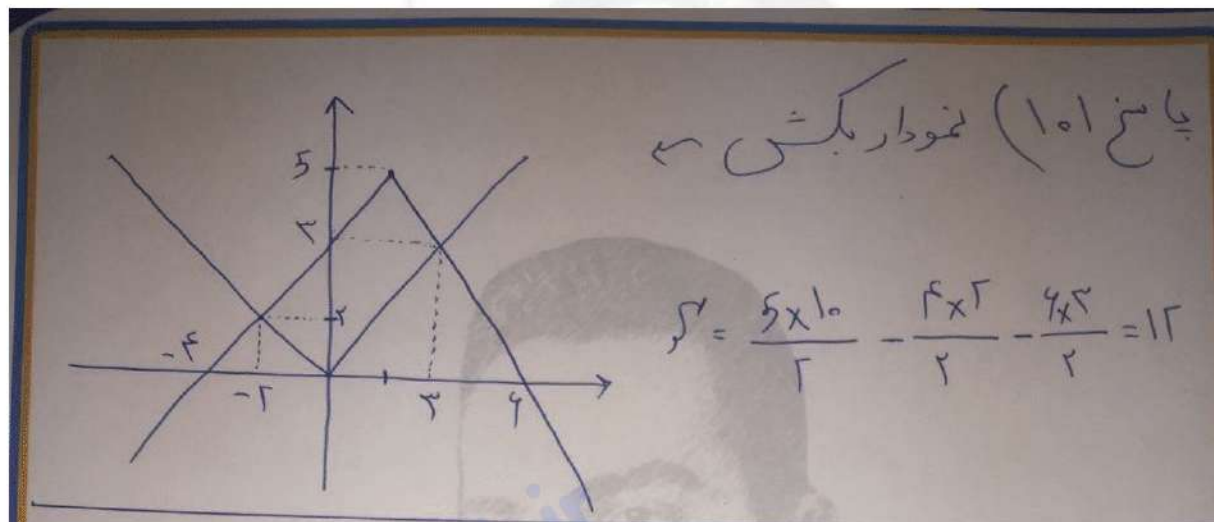 پاسخ ۱۰) نمودار بکش ←
S = ۵×۱۰/۲ - ۴×۲/۲ - ۶×۳/۲ = ۱۲
۵
۳
۲
-۴
-۲
۳
۶